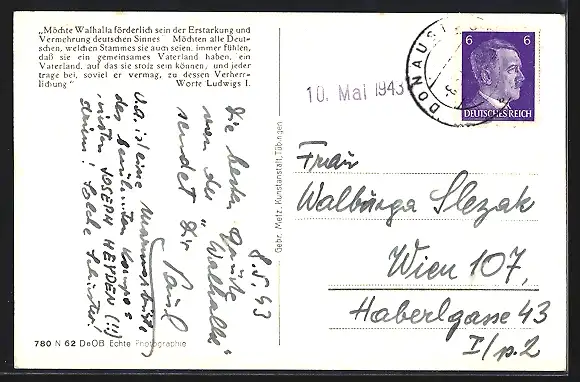 „Möchte Walhalla förderlich sein der Erstarkung und
Vermehrung deutschen Sinnes Möchten alle Deut-
schen, welchen Stammes sie auch seien, immer fühlen,
daß sie ein gemeinsames Vaterland haben, ein
Vaterland, auf das sie stolz sein können, und jeder
trage bei, soviel er vermag, zu dessen Verherr-
lichung" Worte Ludwigs I.
10. Mai 1943
DONAUST
6 6
DEUTSCHES REICH
8.5.43
Die besten Grüße
von der „Walhalla"
sendet Dir Paul
U.a. ist eine Marmorbüste
des berühmten Kompo=
nisten JOSEPH HEYDEN (!!)
drin!
Gebr. Metz, Kunstanstalt, Tübingen
Frau
Walburga Slezak
Wien 107,
Haberlgasse 43
I/p.2
780 N 62 DeOB Echte Photographie